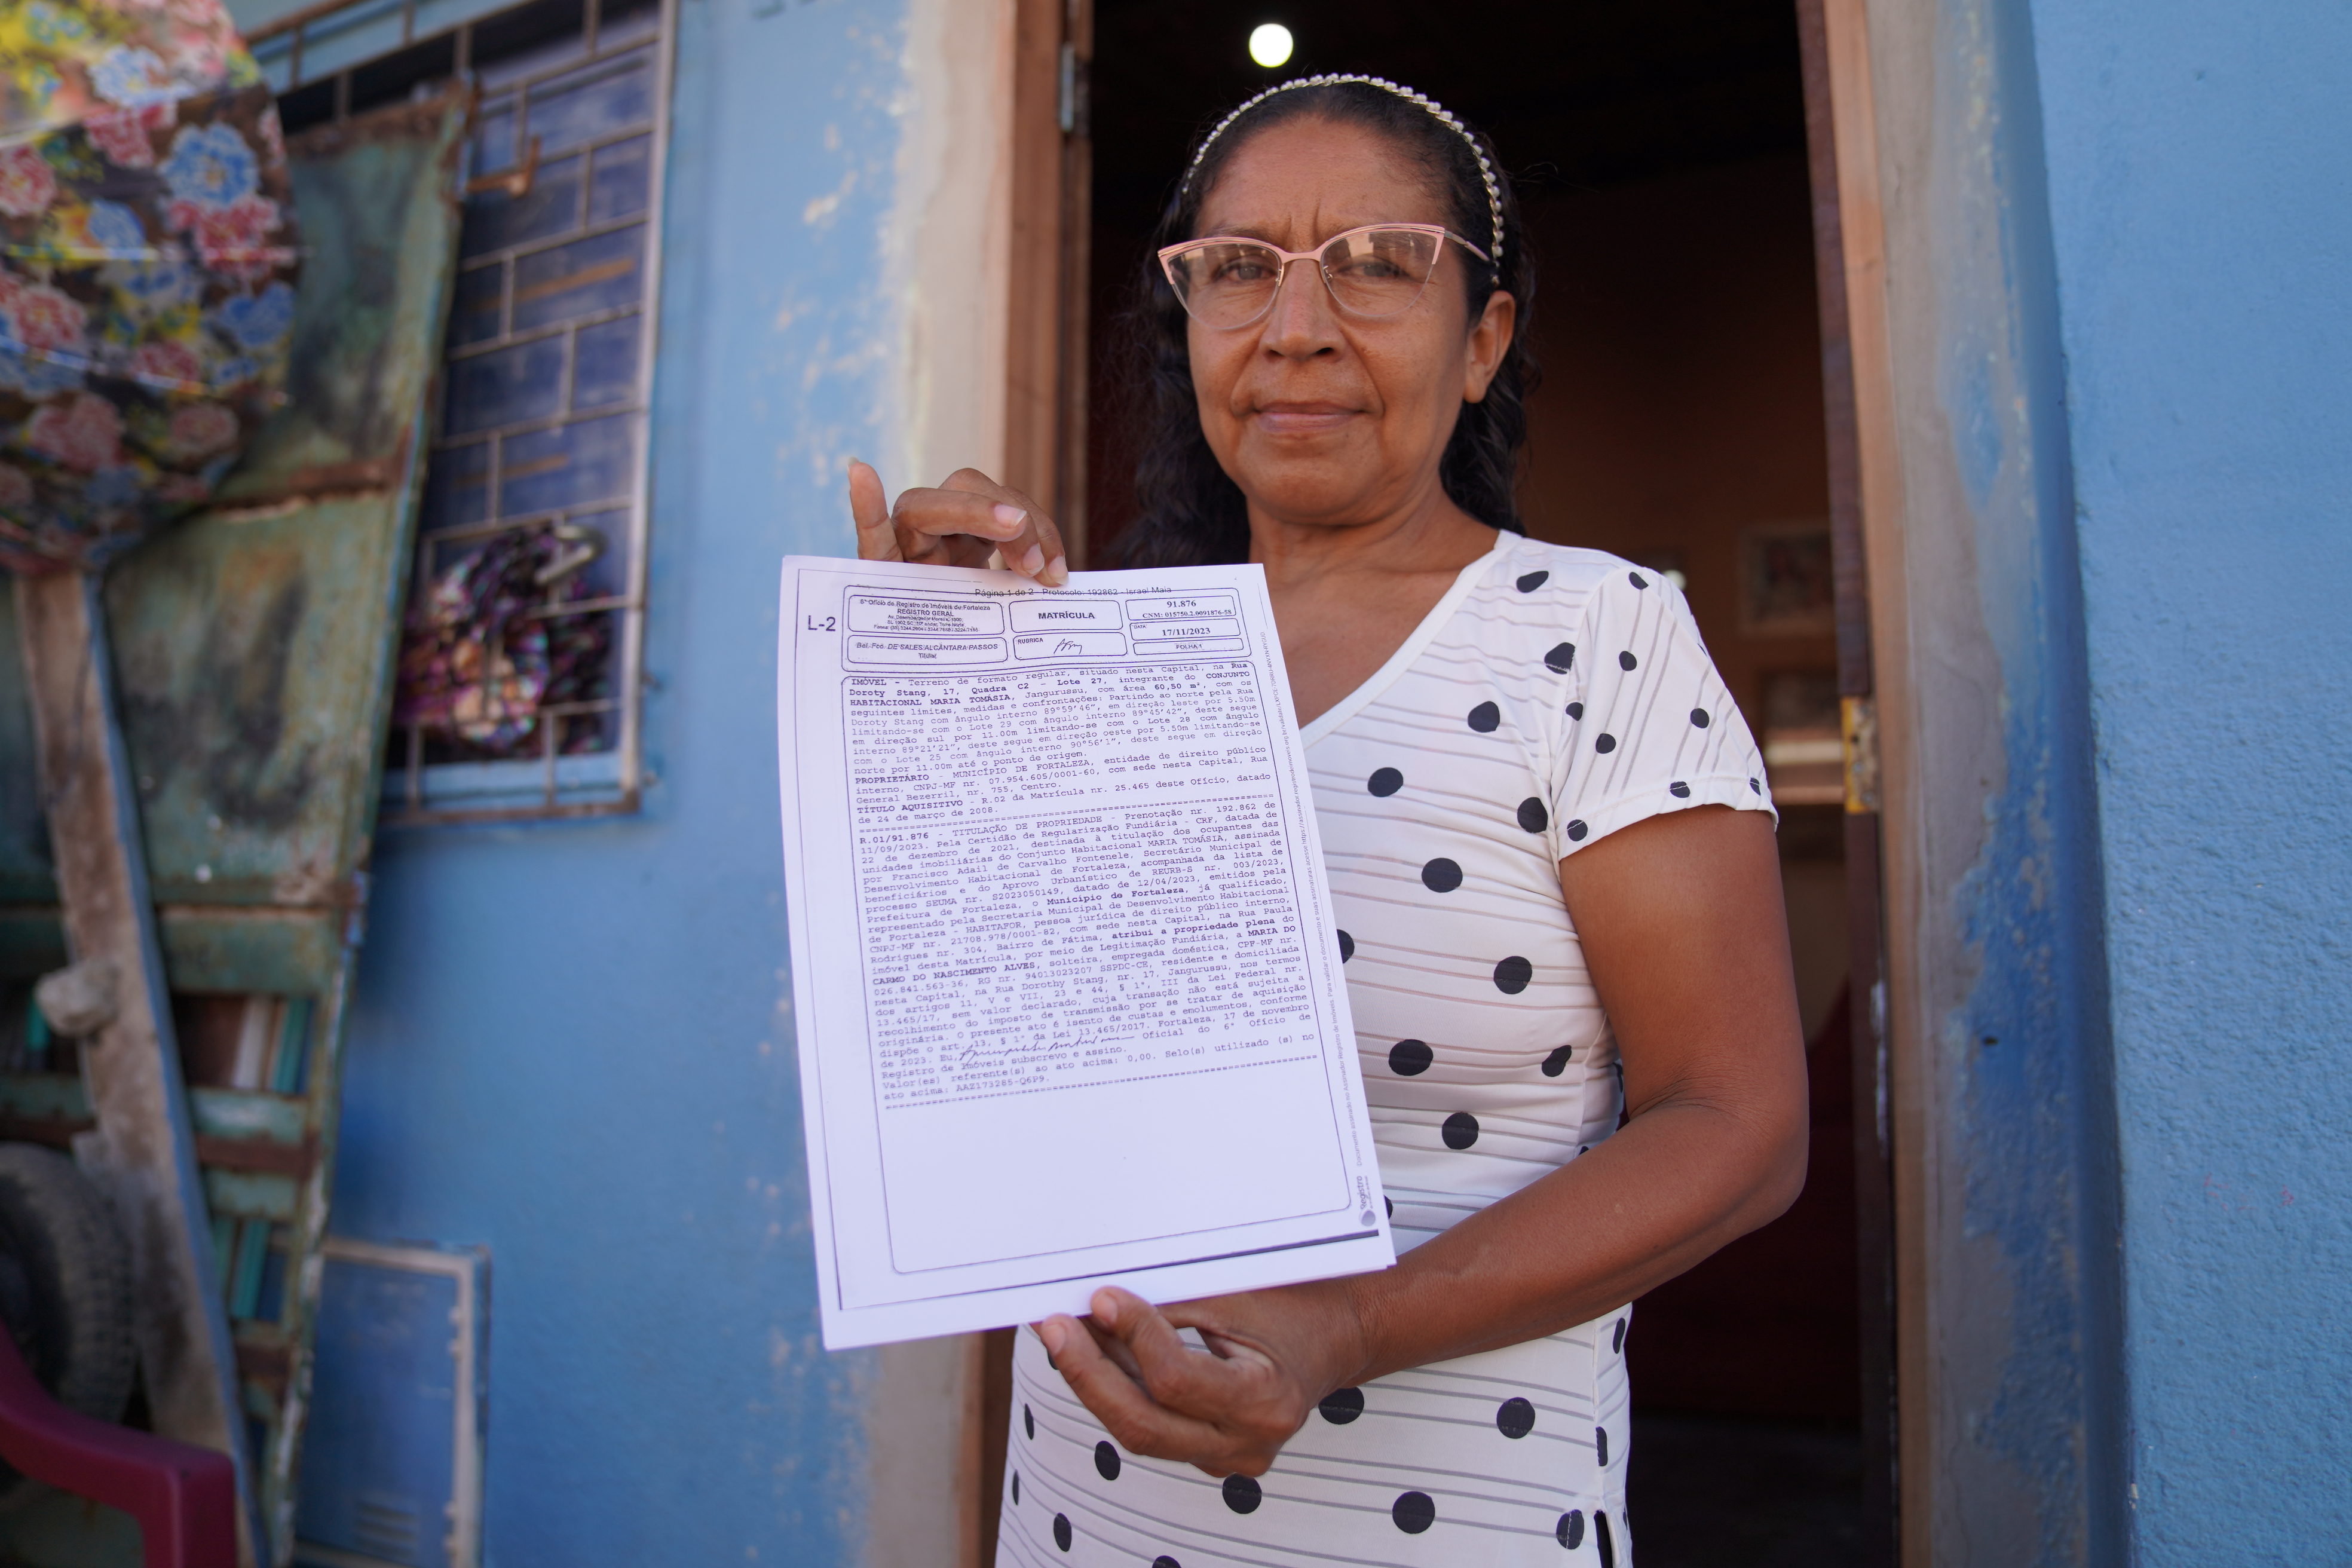 Página 1 de 2 - Protocolo: 192862 - Israel Maia
L-2
6º Ofício de Registro de Imóveis de Fortaleza
REGISTRO GERAL
MATRÍCULA
91.876
CNM: 015750.2.0091876-58
Bel. Fco. DE SALES ALCÂNTARA PASSOS
Titular
RUBRICA
DATA
17/11/2023
FOLHA 1
IMÓVEL - Terreno de formato regular, situado nesta Capital, na Rua
Doroty Stang, 17, Quadra C2 - Lote 27, integrante do CONJUNTO
HABITACIONAL MARIA TOMÁSIA, Jangurussu, com área 60,50 m², com os
seguintes limites, medidas e confrontações: Partindo ao norte pela Rua
Doroty Stang com ângulo interno 89°59'46", em direção leste por 5.50m
limitando-se com o Lote 29 com ângulo interno 89°45'42", deste segue
em direção sul por 11.00m limitando-se com o Lote 28 com ângulo
interno 89°21'21", deste segue em direção oeste por 5.50m limitando-se
com o Lote 25 com ângulo interno 90°56'1", deste segue em direção
norte por 11.00m até o ponto de origem.
PROPRIETÁRIO - MUNICÍPIO DE FORTALEZA, entidade de direito público
interno, CNPJ-MF nr. 07.954.605/0001-60, com sede nesta Capital, Rua
General Bezerril, nr. 755, Centro.
TÍTULO AQUISITIVO - R.02 da Matrícula nr. 25.465 deste Ofício, datado
de 24 de março de 2008.
R.01/91.876 - TITULAÇÃO DE PROPRIEDADE - Prenotação nr. 192.862 de
11/09/2023. Pela Certidão de Regularização Fundiária - CRF, datada de
22 de dezembro de 2021, destinada à titulação dos ocupantes das
unidades imobiliárias do Conjunto Habitacional MARIA TOMÁSIA, assinada
por Francisco Adail de Carvalho Fontenele, Secretário Municipal de
Desenvolvimento Habitacional de Fortaleza, acompanhada da lista de
beneficiários e do Aprovo Urbanístico de REURB-S nr. 003/2023,
processo SEUMA nr. S2023050149, datado de 12/04/2023, emitidos pela
Prefeitura de Fortaleza, o Município de Fortaleza, já qualificado,
representado pela Secretaria Municipal de Desenvolvimento Habitacional
de Fortaleza - HABITAFOR, pessoa jurídica de direito público interno,
CNPJ-MF nr. 21708.978/0001-82, com sede nesta Capital, na Rua Paula
Rodrigues nr. 304, Bairro de Fátima, atribui a propriedade plena do
imóvel desta Matrícula, por meio de Legitimação Fundiária, a MARIA DO
CARMO DO NASCIMENTO ALVES, solteira, empregada doméstica, CPF-MF nr.
026.841.563-36, RG nr. 94013023207 SSPDC-CE, residente e domiciliada
nesta Capital, na Rua Dorothy Stang, nr. 17, Jangurussu, nos termos
dos artigos 11, V e VII, 23 e 44, § 1º, III da Lei Federal nr.
13.465/17, sem valor declarado, cuja transação não está sujeita a
recolhimento do imposto de transmissão por se tratar de aquisição
originária. O presente ato é isento de custas e emolumentos, conforme
dispõe o art. 13, § 1º da Lei 13.465/2017. Fortaleza, 17 de novembro
de 2023. Eu, Oficial do 6º Ofício de
Registro de Imóveis subscrevo e assino.
Valor(es) referente(s) ao ato acima: 0,00. Selo(s) utilizado (s) no
ato acima: AAZ173285-Q6P9.
Registro